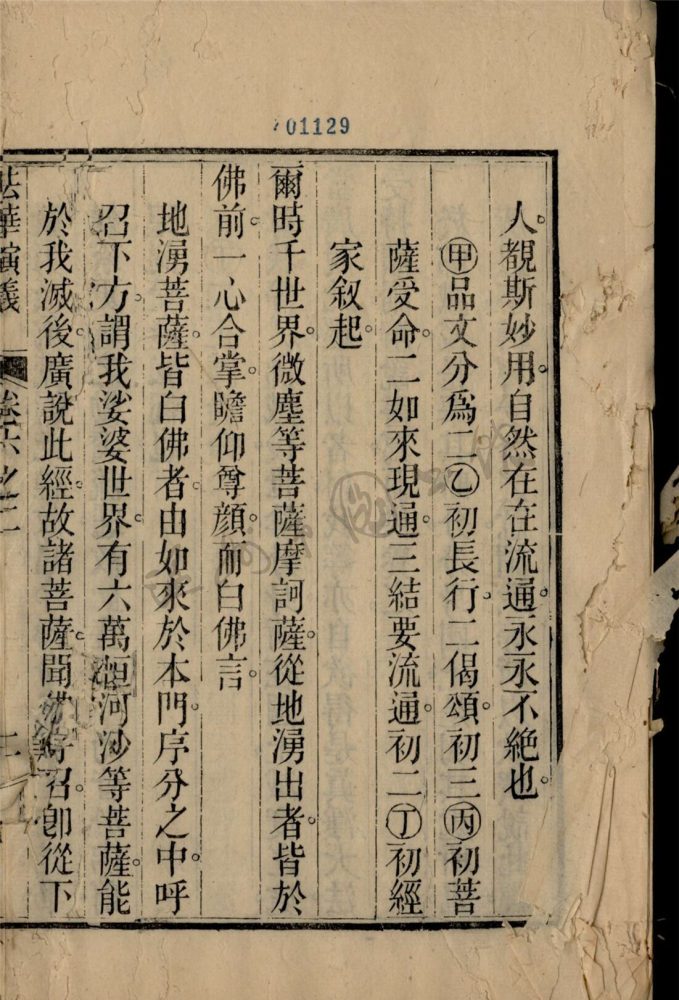 01129
人覩斯妙用。自然在在流通。永永不絕也。
㊙甲品文分爲二乙初長行。二偈頌。初三丙初菩
薩受命。二如來現通。三結要流通。初二丁初經
家敘起。
爾時千世界。微塵等菩薩摩訶薩。從地湧出者。皆於
佛前。一心合掌。瞻仰尊顔。而白佛言。
地湧菩薩。皆白佛者。由如來於本門。序分之中。呼
召下方。謂我娑婆世界。有六萬恒河沙等菩薩。能
於我滅後。廣說此經。故諸菩薩。聞佛召。卽從下
法華演義 卷六之二 二